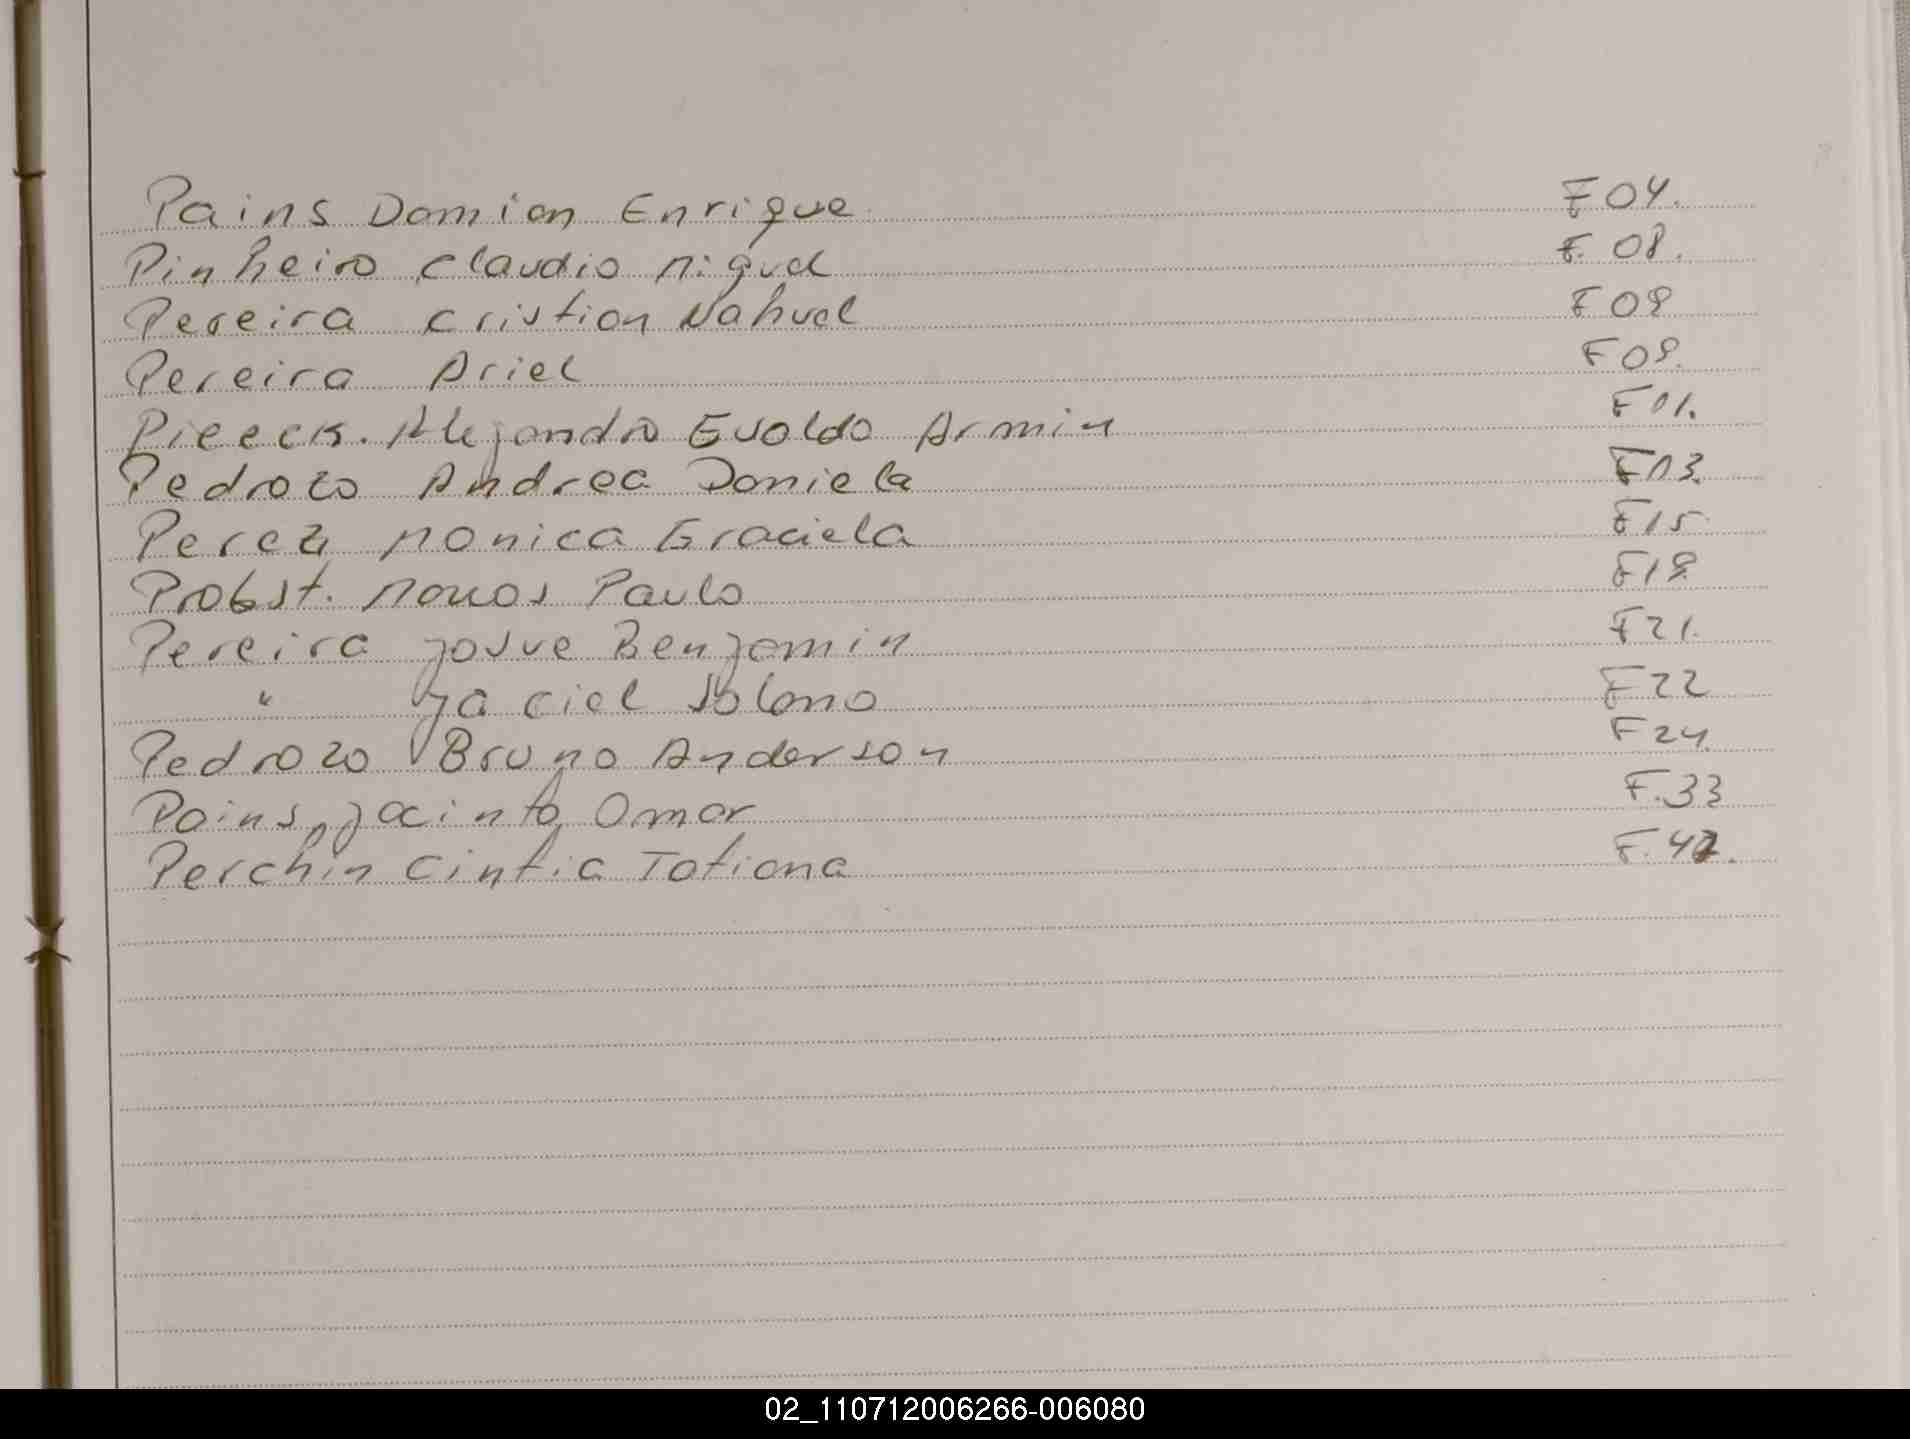 Pains Damian Enrique F 04.
Pinheiro Claudio Miguel F. 08.
Pereira Cristian Nahuel F 09
Pereira Ariel F 09.
Pieeck. Alejandro Evaldo Armin F 11.
Pedrozo Andrea Daniela F 13.
Perez Monica Graciela F 15
Probst. Marcos Paulo F 19.
Pereira Josue Benjamin F 21.
" Jaciel Solano F 22
Pedrozo Bruno Anderson F 24.
Pains, Jacinto Omar F. 33
Perchin Cintia Tatiana F. 47.
02_110712006266-006080